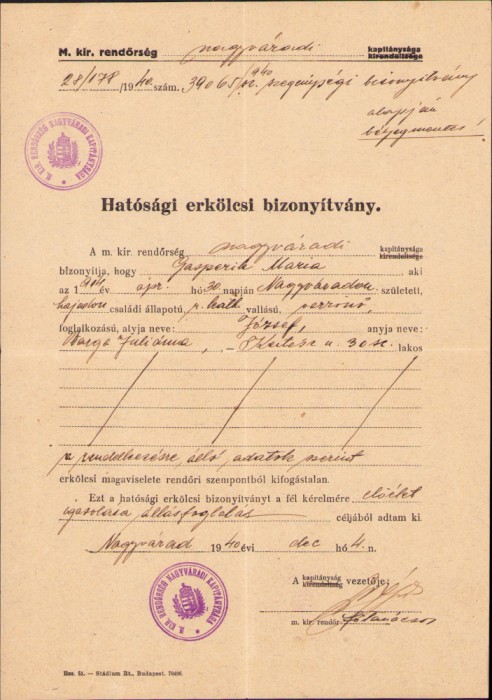 M. kir. rendőrség nagyváradi kapitánysága kirendeltsége
28/178/1940. szám. 39065/1940 szegénységi bizonyitvány
alapján
bélyegmentes!
M. KIR. RENDŐRSÉG NAGYVÁRADI KAPITÁNYSÁGA
Hatósági erkölcsi bizonyítvány.
A m. kir. rendőrség nagyváradi kapitánysága kirendeltsége
bizonyítja, hogy Gasparik Maria aki
az 1914 év ápr. hó 30 napján Nagyváradon született,
hajadon családi állapotú r. kath. vallású, varrónő,
foglalkozású, atyja neve: József, anyja neve:
Varga Juliánna, – u. 30 sz. lakos
a rendelkezésre álló adatok szerint
erkölcsi magaviselete rendőri szempontból kifogástalan.
Ezt a hatósági erkölcsi bizonyítványt a fél kérelmére előélet
igazolása állásfoglalás céljából adtam ki.
Nagyvárad 1940 évi dec hó 4. n.
A kapitányság kirendeltség vezetője:
M. KIR. RENDŐRSÉG NAGYVÁRADI KAPITÁNYSÁGA
m. kir. rendőr főtanácsos
Rsz. 51. — Stádium Rt., Budapest.